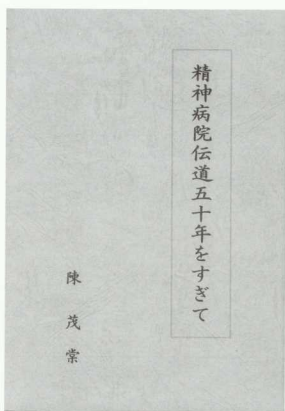 精神病院伝道五十年をすぎて
陳茂棠